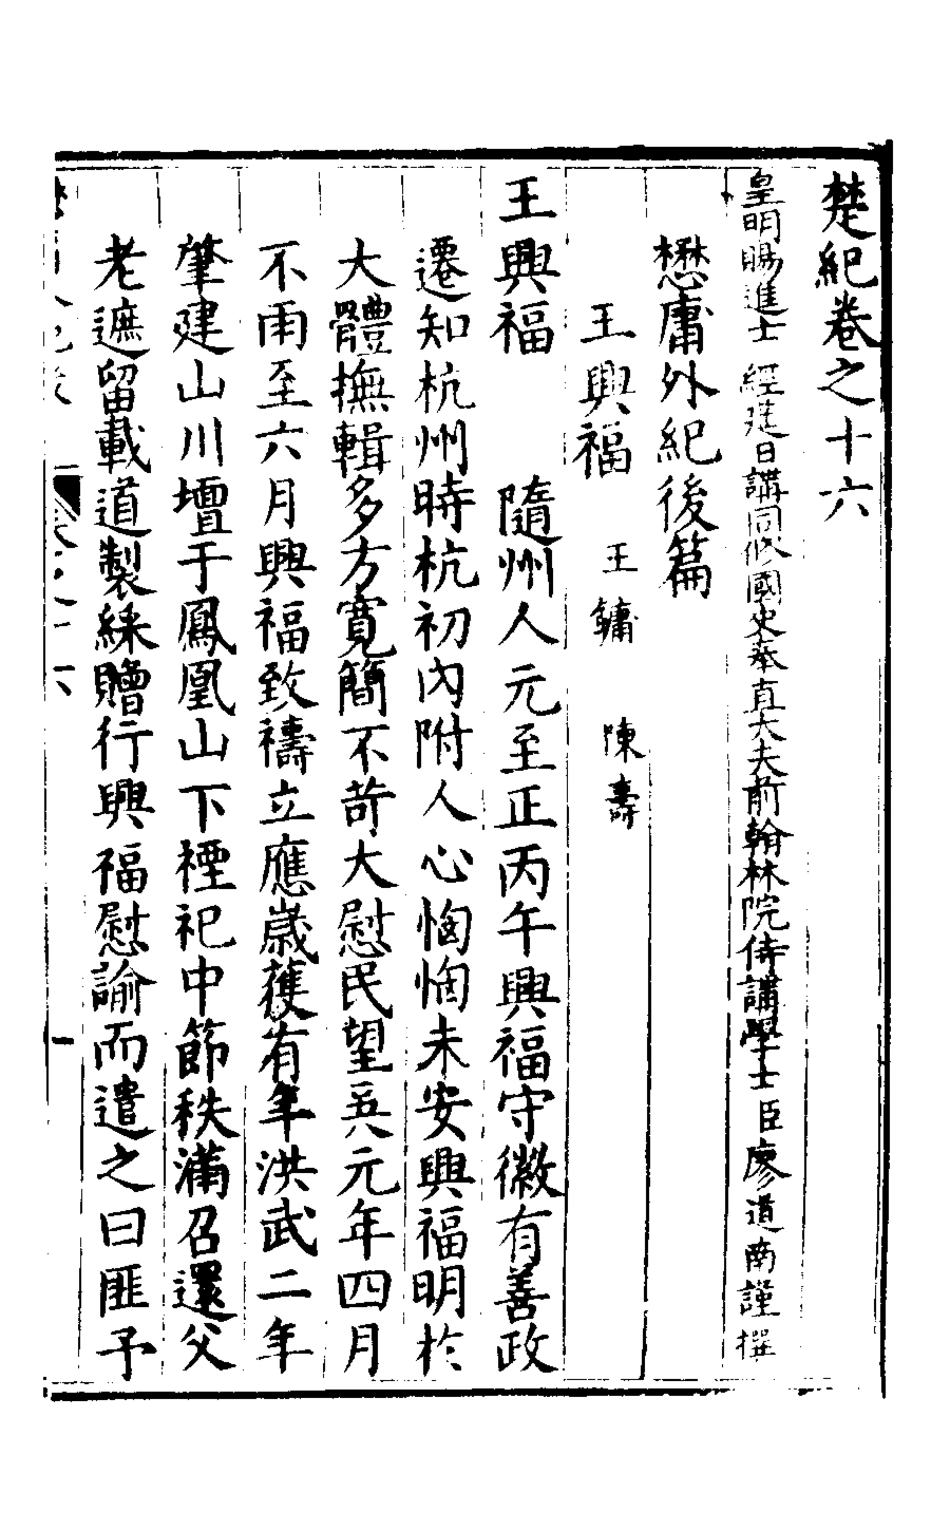 楚紀卷之十六
皇明賜進士 經筵日講同修國史奉直大夫前翰林院侍講學士臣廖道南謹撰
懋庸外紀後篇
王興福 王鏞 陳壽
王興福 隨州人元至正丙午興福守徽有善政
遷知杭州時杭初內附人心恟恟未安興福明於
大體撫輯多方寬簡不苛大慰民望吳元年四月
不雨至六月興福致禱立應歲獲有年洪武二年
肇建山川壇于鳳凰山下禋祀中節秩滿召還父
老遮留載道製綵贈行興福慰諭而遣之曰匪予
卷之十六 一